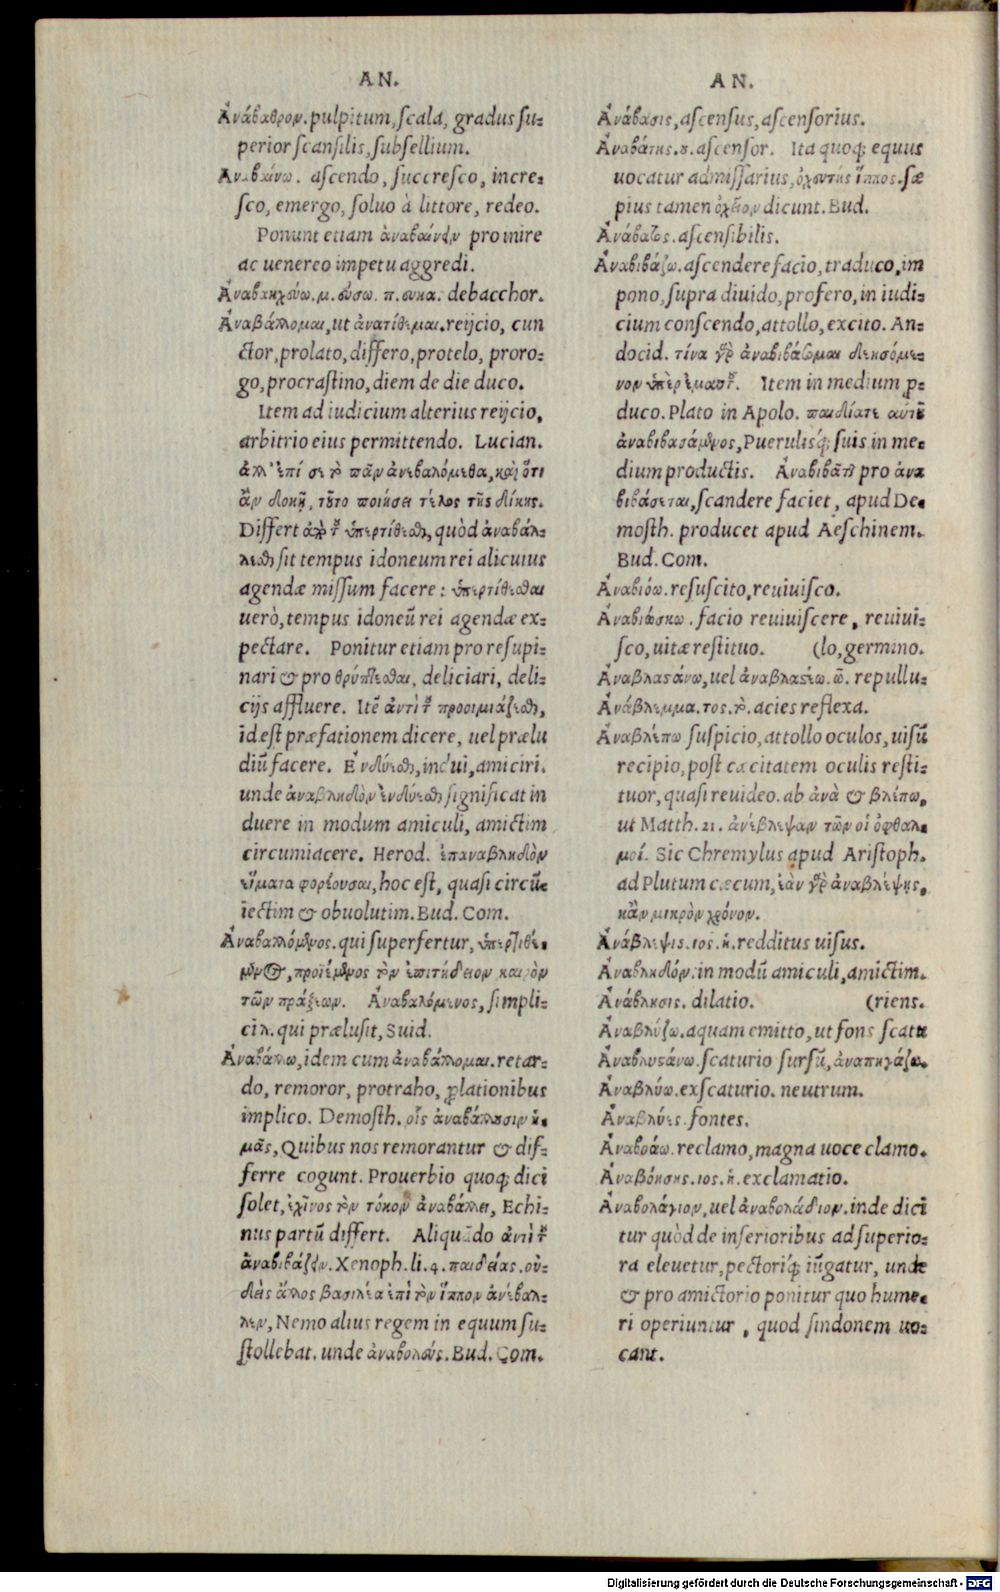 AN.
Ἀνάβαθρον. pulpitum, ſcala, gradus ſu-
perior ſcanſilis, ſubſellium.
Ἀναβαίνω. aſcendo, ſuccreſco, incre-
ſco, emergo, ſoluo à littore, redeo.
Ponunt etiam ἀναβαίνειν pro inire
ac uenereo impetu aggredi.
Ἀναβακχεύω. μ. εύσω. π. ευκα. debacchor.
Ἀναβάλλομαι, ut ἀνατίθεμαι. reijcio, cun
ctor, prolato, differo, protelo, proro-
go, procraſtino, diem de die duco.
Item ad iudicium alterius reijcio,
arbitrio eius permittendo. Lucian.
ἀλλ' ἐπί σε τὸ πᾶν ἀνεβαλόμεθα, καὶ ὅτι
ἂν δοκῇ, τοῦτο ποιήσει τέλος τῆς δίκης.
Differt ἀπὸ τοῦ ὑπερτίθεσθαι, quòd ἀναβάλ-
λεσθαι ſit tempus idoneum rei alicuius
agendæ miſſum facere: ὑπερτίθεσθαι
uerò, tempus idoneũ rei agendæ ex-
pectare. Ponitur etiam pro reſupi-
nari & pro θρύπτεσθαι, deliciari, deli-
cijs affluere. Itẽ ἀντὶ τοῦ προοιμιάζεσθαι,
id eſt præfationem dicere, uel prælu
diũ facere. Ἐνδύεσθαι, indui, amiciri.
unde ἀναβληδὸν ἐνδύεσθαι ſignificat in
duere in modum amiculi, amictim
circumiacere. Herod. ἐπαναβληδὸν
εἵματα φορέουσαι, hoc eſt, quaſi circũ-
iectim & obuolutim. Bud. Com.
Ἀναβαλλόμενος. qui ſuperfertur, ὑπερτιθέ-
μενος, προϊέμενος τὸν ἐπιτήδειον καιρὸν
τῶν πράξεων. Ἀναβαλόμενος, ſimpli-
ci λ. qui præluſit, Suid.
Ἀναβάλλω, idem cum ἀναβάλλομαι. retar-
do, remoror, protraho, ꝓlationibus
implico. Demoſth. οἷς ἀναβάλλουσιν ἡ-
μᾶς, Quibus nos remorantur & dif-
ferre cogunt. Prouerbio quoq; dici
ſolet, ἐχῖνος τὸν τόκον ἀναβάλλει, Echi-
nus partũ differt. Aliquãdo ἀντὶ τοῦ
ἀναβιβάζειν. Xenoph. li. 4. παιδείας. οὐ-
δεὶς ἄλλος βασιλέα ἐπὶ τὸν ἵππον ἀνέβαλ-
λεν, Nemo alius regem in equum ſu-
ſtollebat. unde ἀναβολεύς. Bud. Com.
AN.
Ἀνάβασις, aſcenſus, aſcenſorius.
Ἀναβάτης. ου. aſcenſor. Ita quoq; equus
uocatur admiſſarius, ὀχευτὴς ἵππος. ſæ
pius tamen ὀχεῖον dicunt. Bud.
Ἀνάβατος. aſcenſibilis.
Ἀναβιβάζω. aſcendere facio, traduco, im
pono, ſupra diuido, profero, in iudi-
cium conſcendo, attollo, excito. An-
docid. τίνα γὰρ ἀναβιβάσωμαι δεησόμε-
νον ὑπὲρ ἐμαυτοῦ. Item in medium ꝓ-
duco. Plato in Apolo. παιδία τε αὑτοῦ
ἀναβιβασάμενος, Puerulisq́; ſuis in me-
dium productis. Ἀναβιβᾶται pro ἀνα
βιβάσεται, ſcandere faciet, apud De-
moſth. producet apud Aeſchinem.
Bud. Com.
Ἀναβιόω. reſuſcito, reuiuiſco.
Ἀναβιώσκω. facio reuiuiſcere, reuiui-
ſco, uitæ reſtituo. (lo, germino.
Ἀναβλαστάνω, uel ἀναβλαστέω. ῶ. repullu-
Ἀνάβλεμμα. τος. τὸ. acies reflexa.
Ἀναβλέπω ſuſpicio, attollo oculos, uiſũ
recipio, poſt cæcitatem oculis reſti-
tuor, quaſi reuideo. ab ἀνὰ & βλέπω,
ut Matth. 21. ἀνέβλεψαν τῶν οἱ ὀφθαλ-
μοί. Sic Chremylus apud Ariſtoph.
ad Plutum cæcum, ἐὰν γὰρ ἀναβλέψῃς,
κἂν μικρὸν χρόνον.
Ἀνάβλεψις. ιος. ἡ. redditus uiſus.
Ἀναβληδόν. in modũ amiculi, amictim.
Ἀνάβλησις. dilatio. (riens.
Ἀναβλύζω. aquam emitto, ut fons ſcatu
Ἀναβλυστάνω. ſcaturio ſurſũ, ἀναπηγάζω.
Ἀναβλύω. exſcaturio. neutrum.
Ἀναβλύες. fontes.
Ἀναβοάω. reclamo, magna uoce clamo.
Ἀναβόησης. ιος. ἡ. exclamatio.
Ἀναβολάγιον, uel ἀναβολάδιον. inde dici
tur quòd de inferioribus ad ſuperio-
ra eleuetur, pectoriq́; iũgatur, unde
& pro amictorio ponitur quo hume-
ri operiuntur, quod ſindonem uo-
cant.
Digitalisierung gefördert durch die Deutsche Forschungsgemeinschaft - DFG